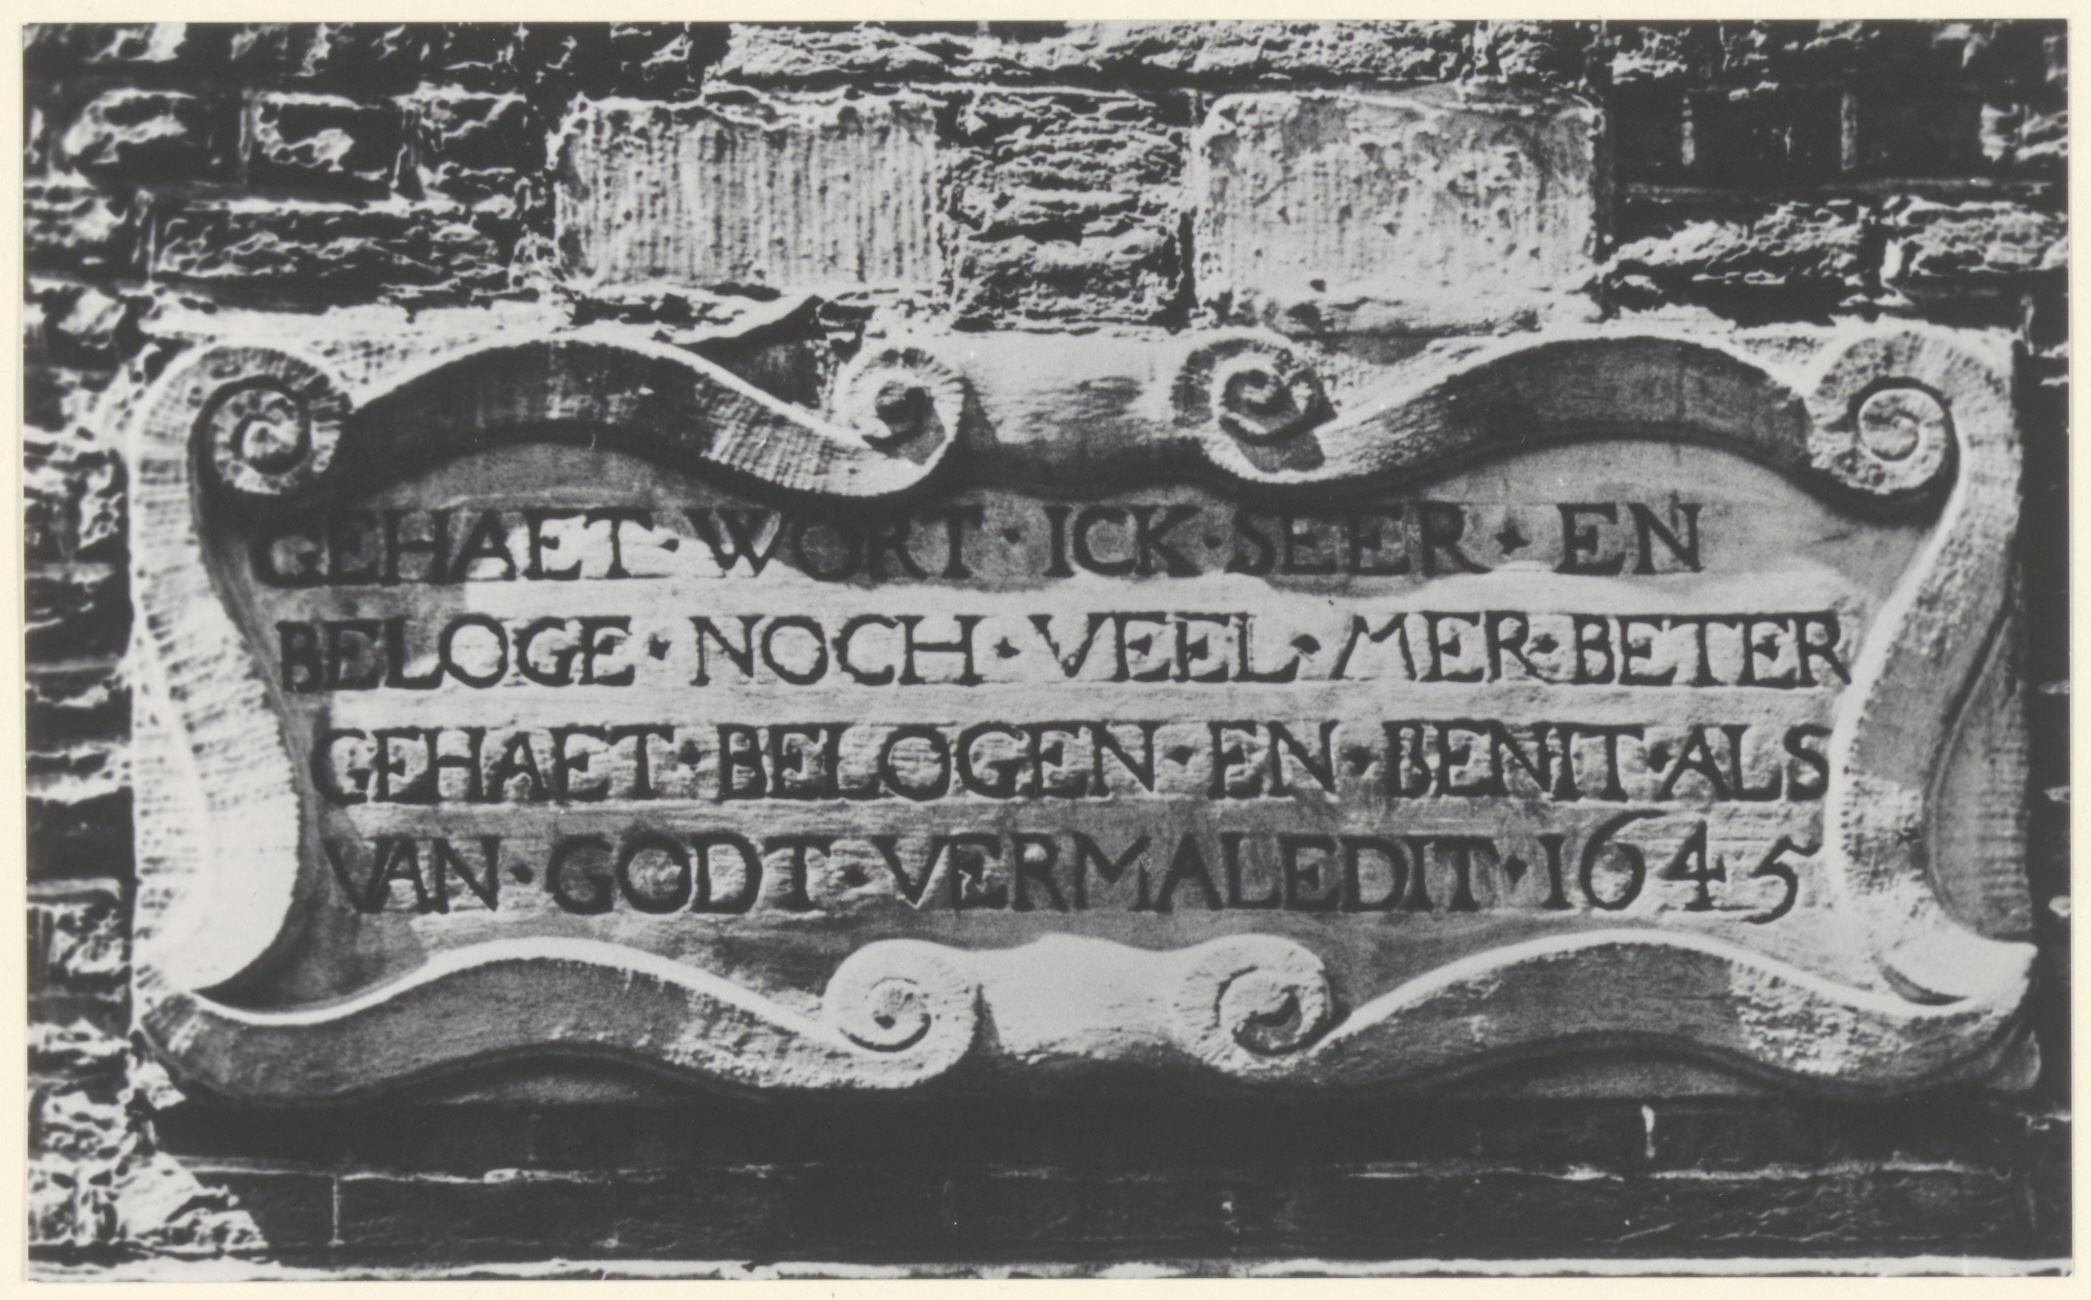 GEHAET · WORT · ICK · SEER · EN
BELOGE · NOCH · VEEL · MER · BETER
GEHAET · BELOGEN · EN · BENIT · ALS
VAN · GODT · VERMALEDIT · 1645